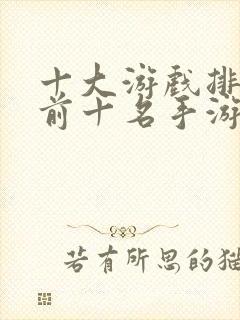 十大游戏排
前十名手游
若有所思的猫